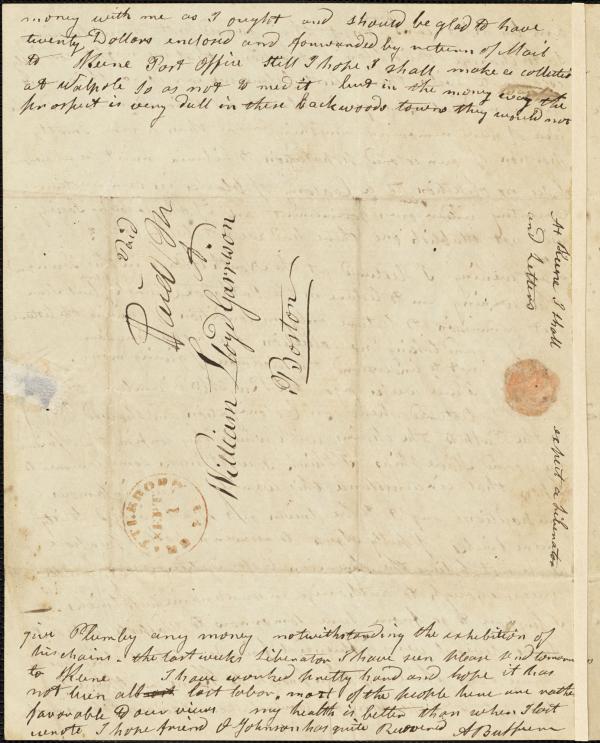 money with me as I ought and should be glad to have
twenty Dollars enclosed and forwarded by return of Mail
to Keene Post Office Still I hope I shall make a collection
at Walpole so as not to need it but in the money way the
prospect is very dull in these backwoods towns they would not
Paid
Paid
William Lloyd Garrison
Boston
At Keene I shall expect a Liberator
and Letters
SEPT
1
give Plumbly any money notwithstanding the exhibition of
his chains - the last weeks Liberator I have seen please send tomorrow
to Keene I have worked pretty hard and hope it has
not been all lost labor. most of the people here are rather
favorable to our views my health is better than when I last
wrote, I hope friend O Johnson has quite Recovered A Buffum